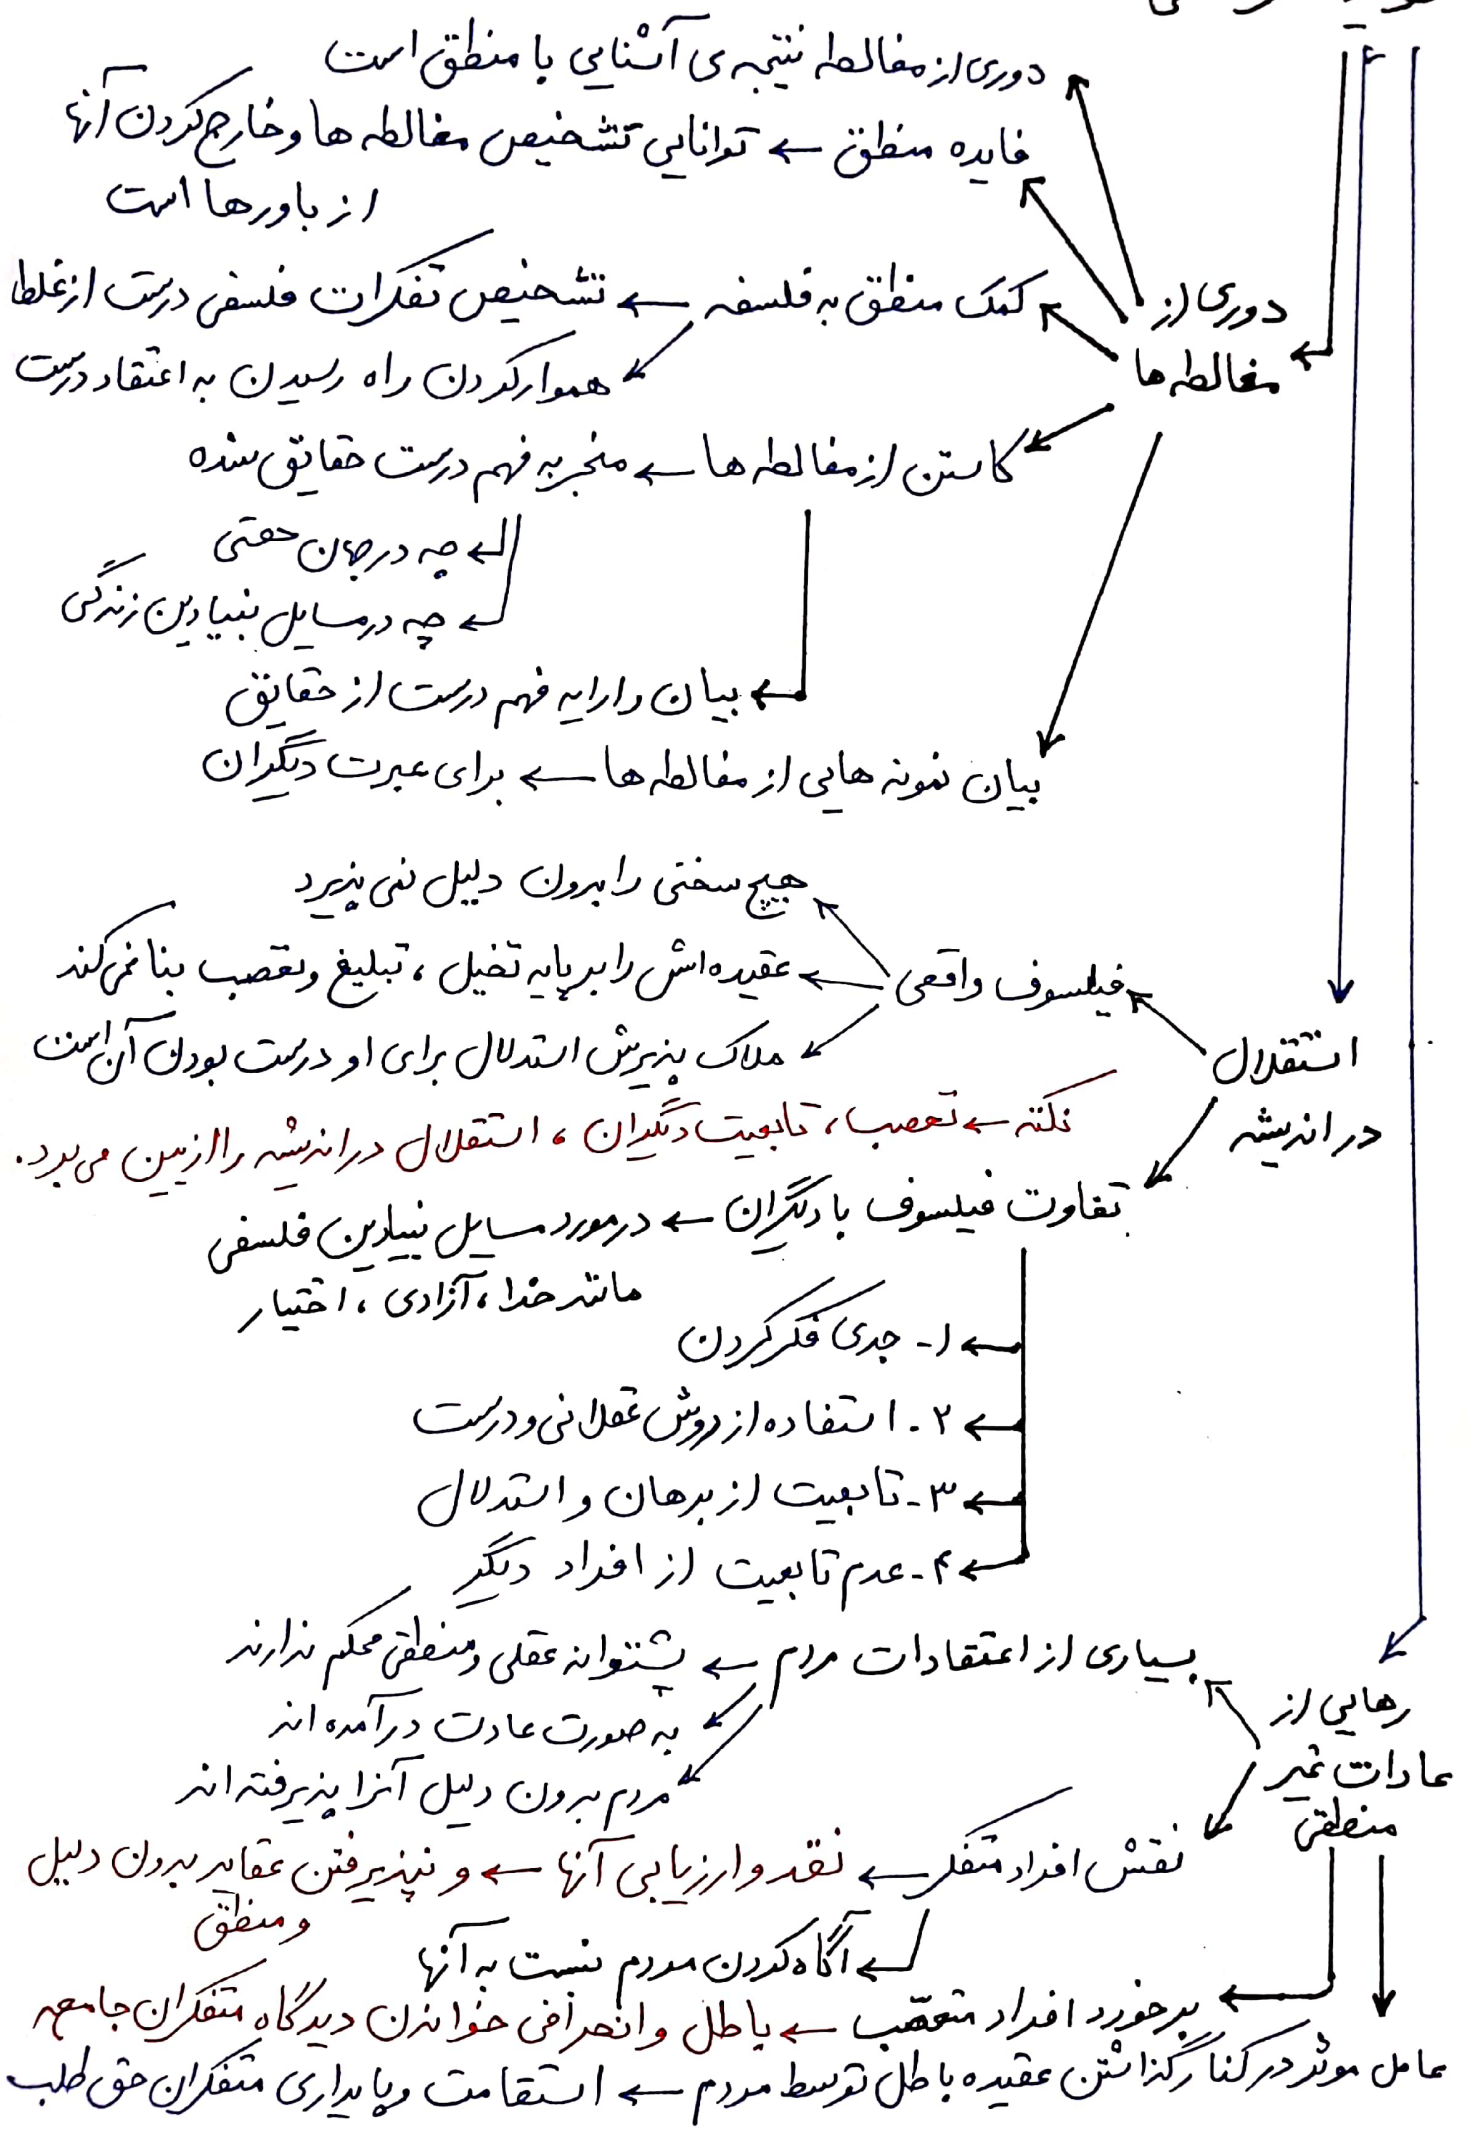 دوری از مغالطه نتیجه ی آشنایی با منطق است
فایده منطق ← توانایی تشخیص مغالطه ها و خارج کردن آنها
از باورها است
دوری از
مغالطه ها
کمک منطق به فلسفه ← تشخیص تفکرات فلسفی درست از غلط
هموار کردن راه رسیدن به اعتقاد درست
کاستن از مغالطه ها ← منجر به فهم درست حقایق شده
← چه در جهان هستی
← چه در مسایل بنیادین زندگی
← بیان و ارایه فهم درست از حقایق
بیان نمونه هایی از مغالطه ها ← برای عبرت دیگران
استقلال
در اندیشه
فیلسوف واقعی
هیچ سخنی را بدون دلیل نمی پذیرد
عقیده اش را بر پایه تخیل ، تبلیغ و تعصب بنا نمی کند
ملاک پذیرش استدلال برای او درست بودن آن است
نکته ← تعصب ، تابعیت دیگران ، استقلال در اندیشه را از بین می برد.
تفاوت فیلسوف با دیگران ← در مورد مسایل بنیادین فلسفی
مانند خدا ، آزادی ، اختیار
← ۱- جدی فکر کردن
← ۲- استفاده از روش عقلانی و درست
← ۳- تابعیت از برهان و استدلال
← ۴- عدم تابعیت از افراد دیگر
رهایی از
عادات غیر
منطقی
بسیاری از اعتقادات مردم ← پشتوانه عقلی و منطقی محکم ندارند
به صورت عادت درآمده اند
مردم بدون دلیل آنرا پذیرفته اند
نقش افراد متفکر ← نقد و ارزیابی آنها ← و نپذیرفتن عقاید بدون دلیل
و منطق
← آگاه کردن مردم نسبت به آنها
برخورد افراد متعصب ← باطل و انحرافی خواندن دیدگاه متفکران جامعه
عامل موثر در کنار گذاشتن عقیده باطل توسط مردم ← استقامت و پایداری متفکران حق طلب